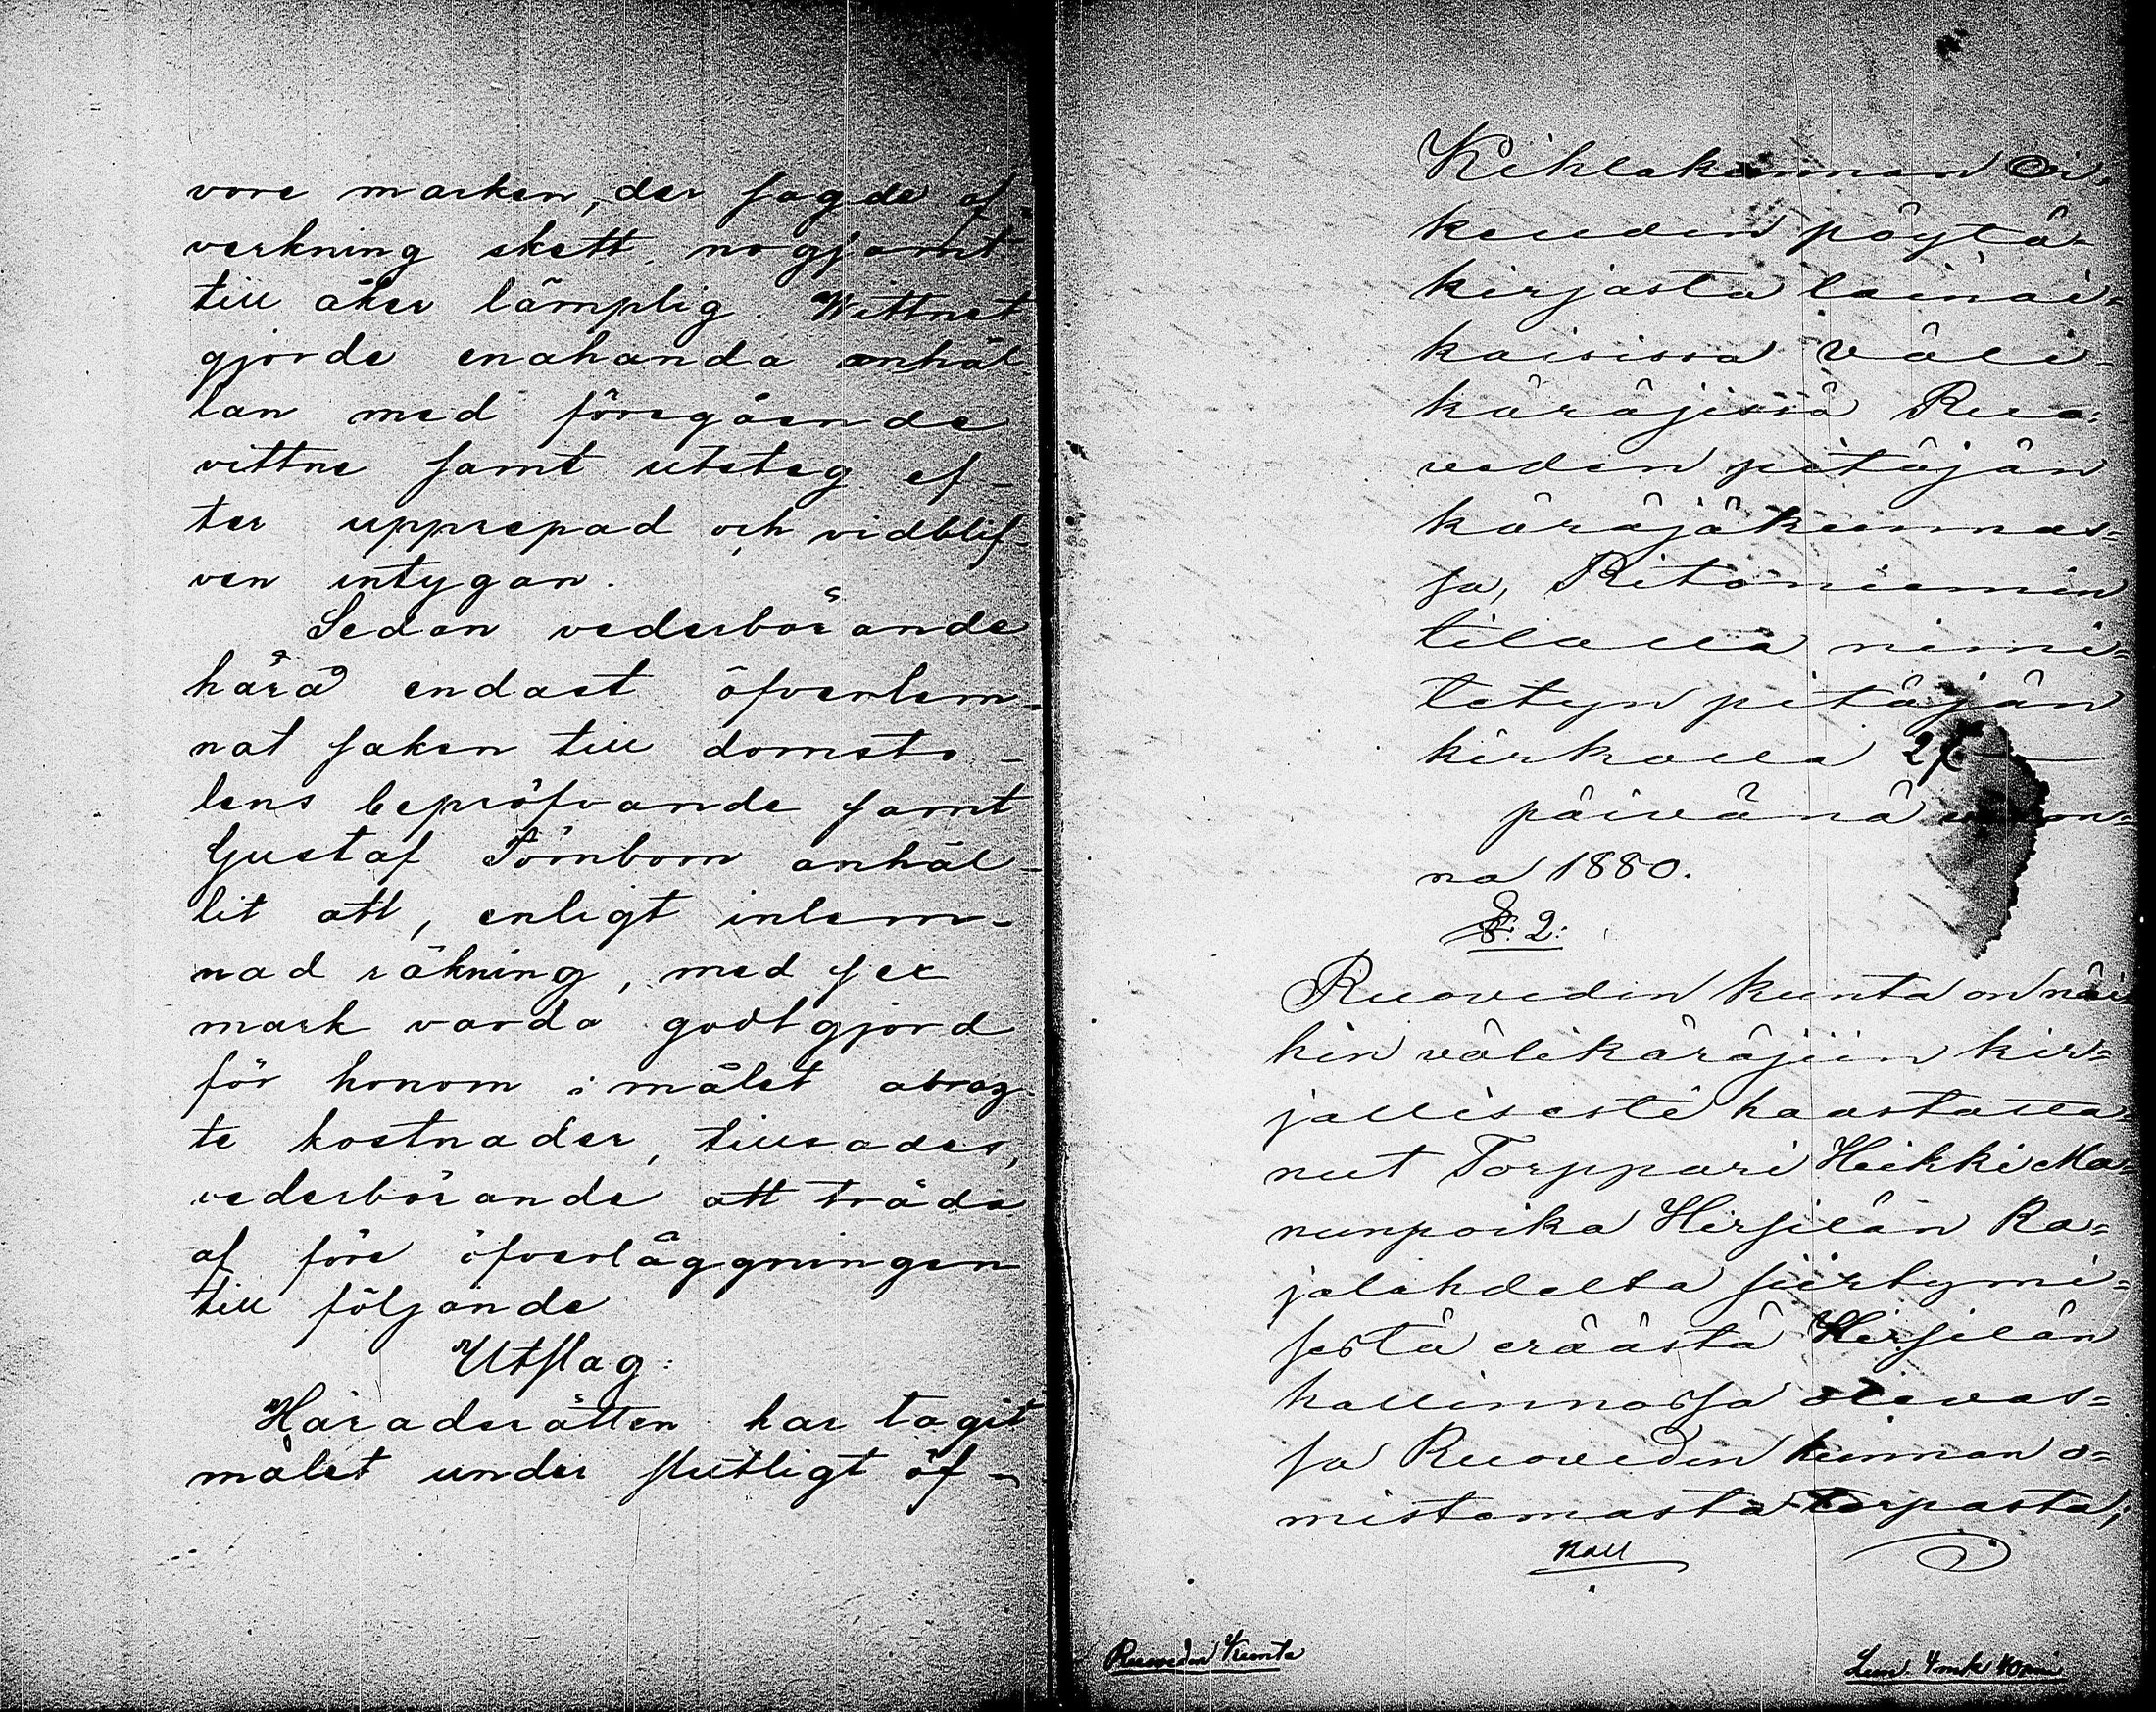 vore marken, der sagde af-
verkning skett, nogsamt
till åker lämplig. Wittnet
gjorde enahanda anhål-
lan med föregående
vittne samt utsteg ef-
ter upprepad och vidblif-
ven intygan.
Sedan vederbörande
härå endast öfverlem-
nat saken till domsto-
lens bepröfvande samt
Gustaf Törnbom anhål-
lit att, enligt inlem-
nad räkning, med sex
mark varda godtgjord
för honom i målet åbrag-
te kostnader, tillsades,
vederbörande att träda
af före öfverläggningen
till följande
Utslag:
Häradsrätten har tagit
målet under slutligt öf-
Kihlakunnan Oi-
keuden pöytä-
kirjasta lainai-
kaisissa Väli-
käräjissä Ruo-
veden pitäjän
käräjäkunnas-
sa, Ritoniemin
tilalla nimi-
tetyn pitäjän
kirkolla 27
päivänä
na 1880.
§. 2:
Ruoveden kunta on näi-
hin välikäräjiin kir-
jallisesti haastatta-
nut Torppari Heikki Ma-
nunpoika Hirsilän Ra-
jalahdelta siirtymi-
sestä eräästä Hirsilän
hallinnossa olevas-
sa Ruoveden kunnan o-
mistamasta torpasta,
Ruoveden Kunta
Lun. 4 mk 40 pni